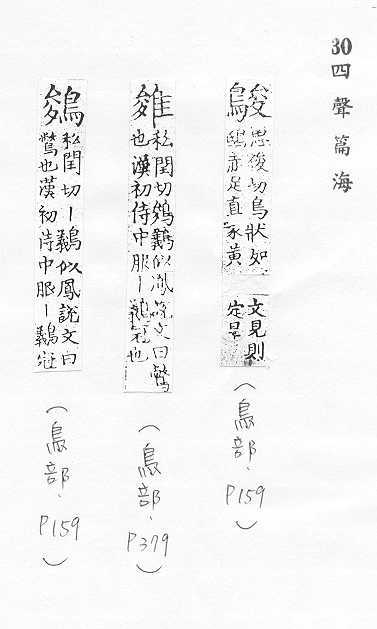 30 四聲篇海
思俊切鳥狀如
鴟赤足直豕黄
文見則
定旱
(鳥部、P159)
私閏切鵔鸃似鳳說文曰鷩
也漢初侍中服丨鸃冠也
(鳥部、P379)
鵔
私閏切丨鸃似鳳說文曰
鷩也漢初侍中服丨鸃冠
(鳥部、P159)